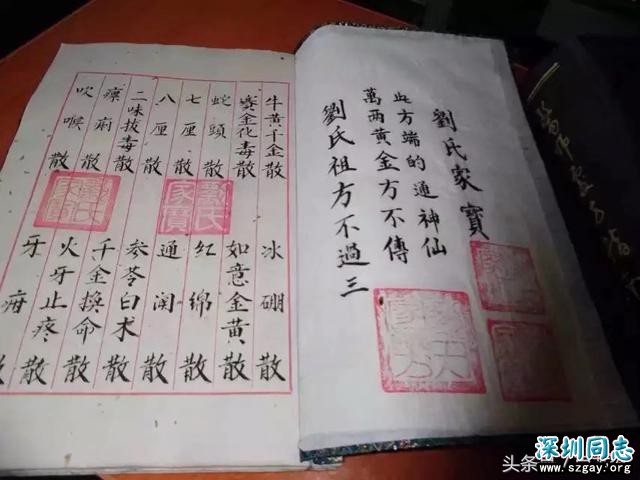 劉氏家寶
此方端的通神仙
萬兩黃金方不傳
劉氏祖方不過三
牛黃千金散
賽金化毒散
蛇頭散
七厘散
八厘散
二味拔毒散
散
吹喉散
冰硼散
如意金黃散
紅綿散
通関散
參苓白术散
千金換命散
火牙止疼散
牙疳散
劉氏家寶
头条
深圳同志
www.szgay.org